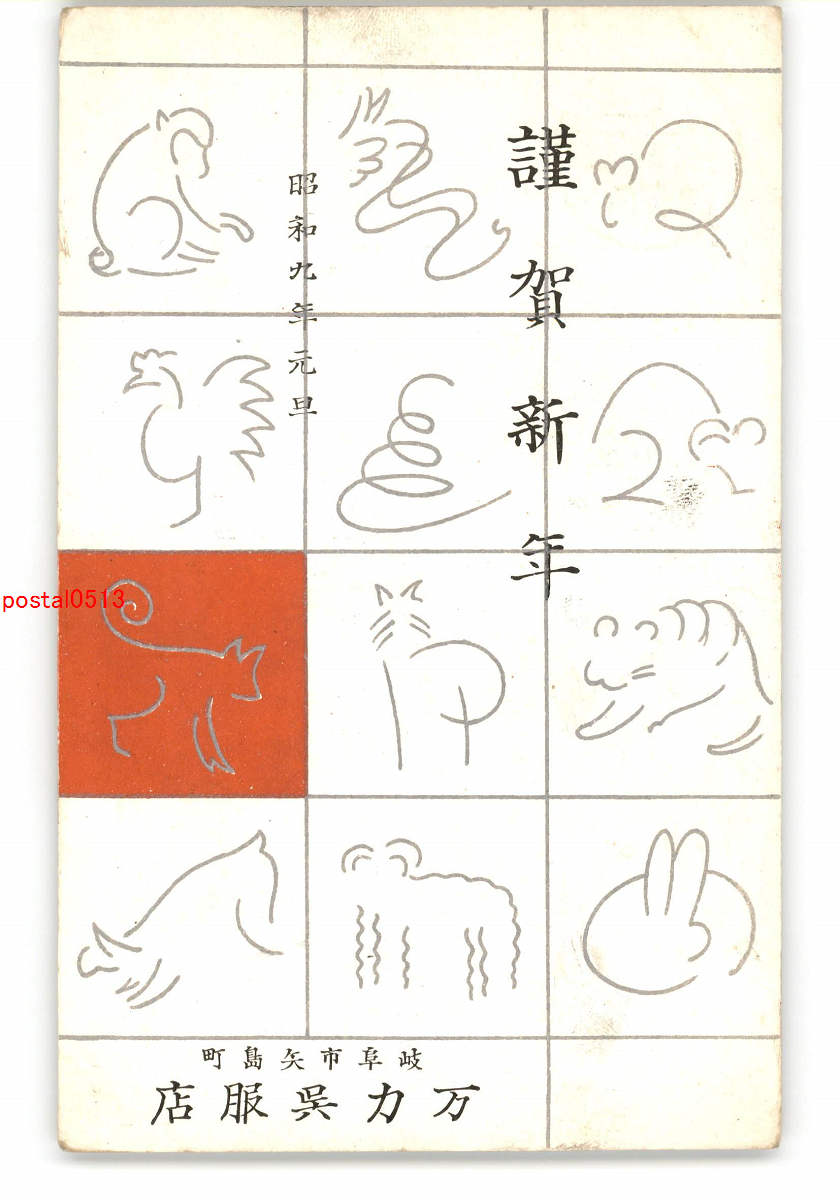 謹賀新年
昭和九年元旦
岐阜市矢島町
万力呉服店
postal0513